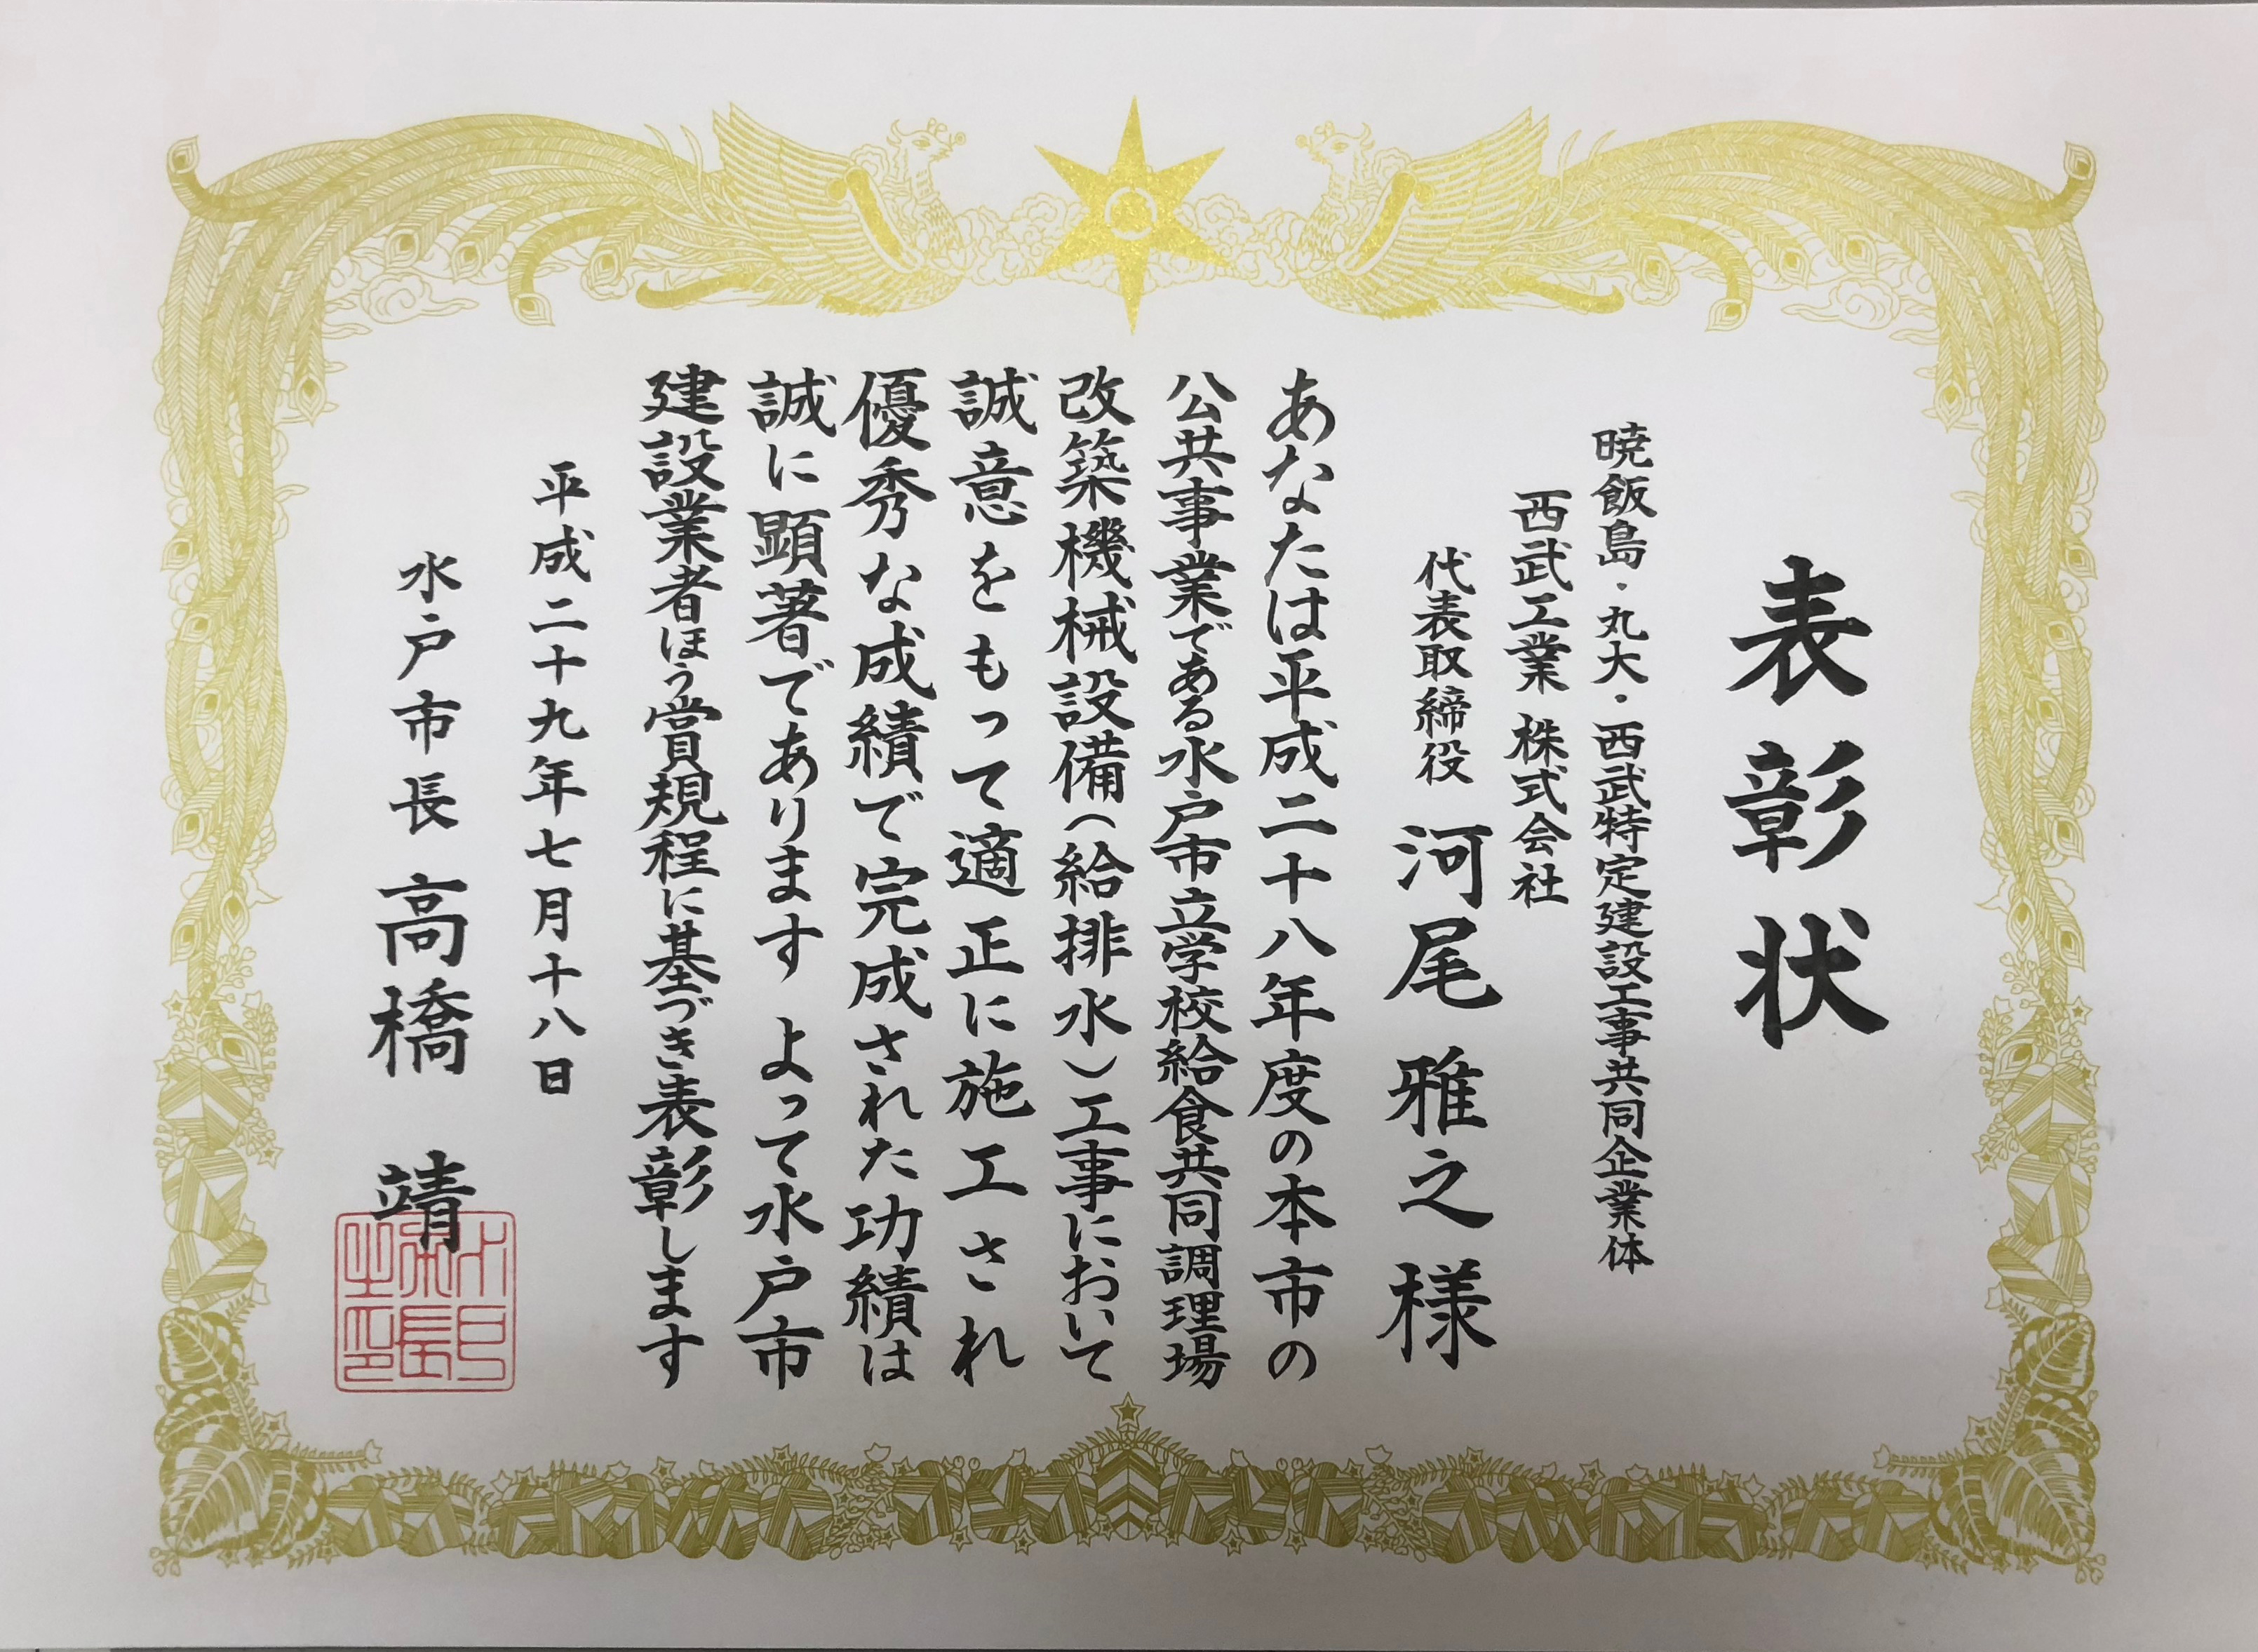 表彰状
暁飯島・丸大・西武特定建設工事共同企業体
西武工業 株式会社
代表取締役 河尾 雅之 様
あなたは平成二十八年度の本市の
公共事業である水戸市立学校給食共同調理場
改築機械設備（給排水）工事において
誠意をもって適正に施工され
優秀な成績で完成された功績は
誠に顕著であります よって水戸市
建設業者ほう賞規程に基づき表彰します
平成二十九年七月十八日
水戸市長 高橋 靖
水戸市長之印